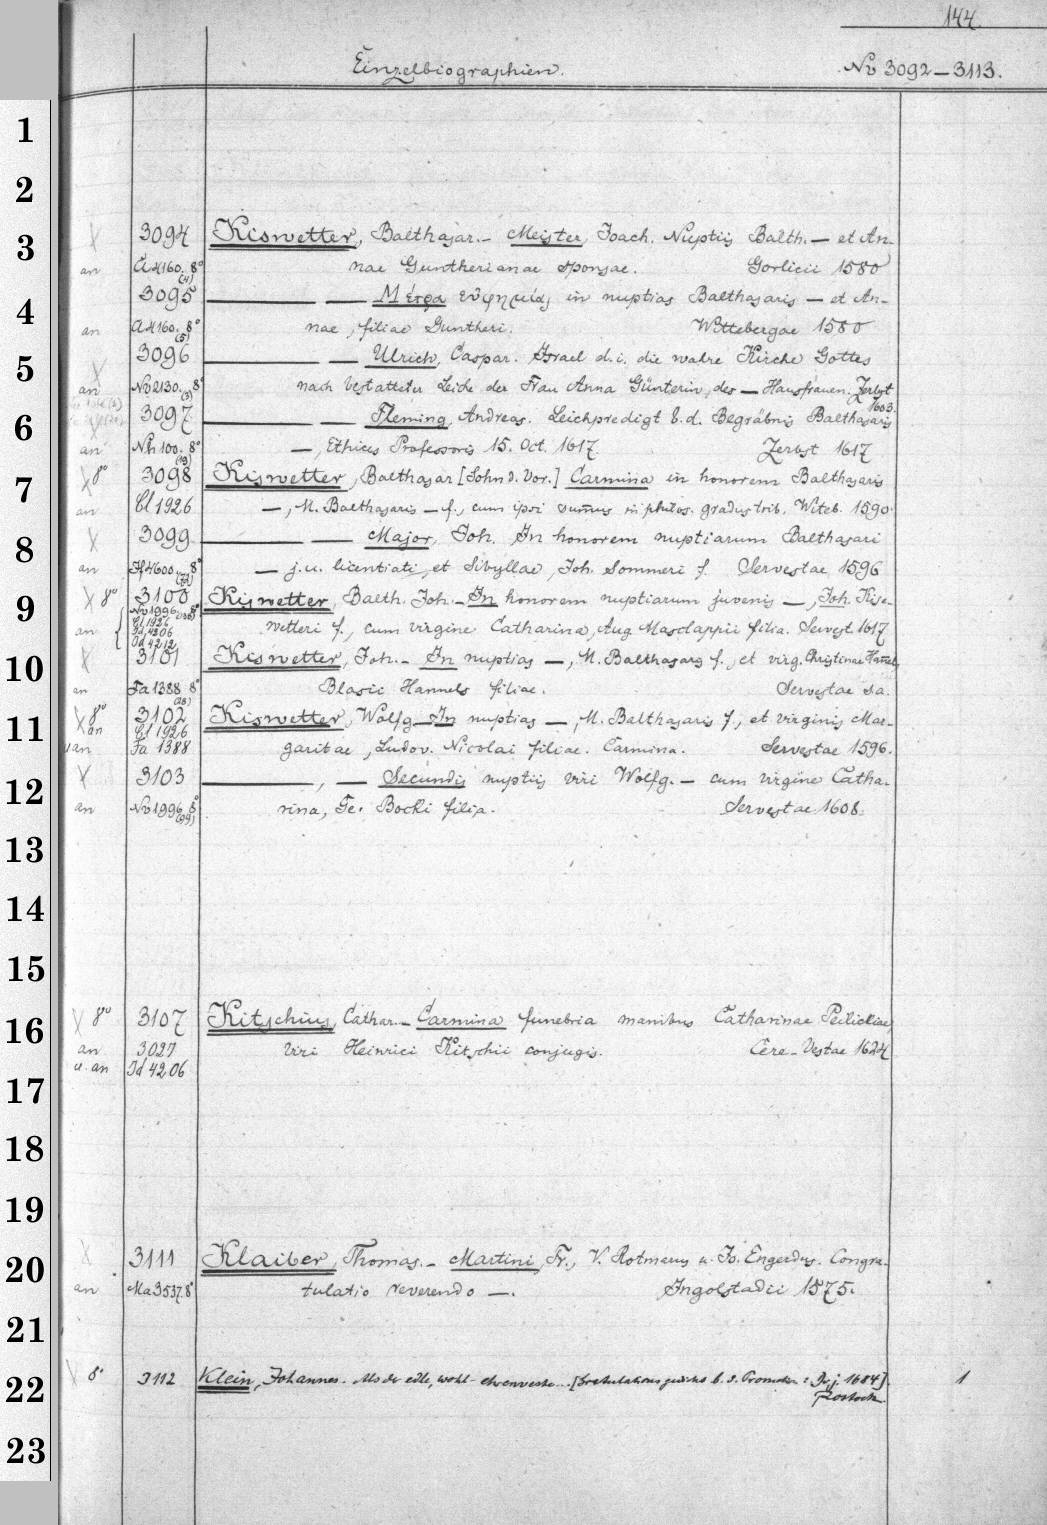 144.
Einzelbiographien. No 3092–3113.
1
2
3 X 3094 Kiswetter, Balthasar. – Meister, Joach. Nuptiis Balth. — et An-
an 8° nae Guntherianae sponsae. Gorlicii 1580
(4)
4 3095 — — Μέτρα εὐφημίας in nuptias Balthasaris — et An-
an 8° nae, filiae Guntheri. Wittebergae 1580
(5)
5 X 3096 — — Ulrich, Caspar. Israel d. i. die wahre Kirche Gottes
an No 2130. 8° nach bestatteter Leiche der Frau Anna Günterin, des — Hausfrauen. Zerbst
(3) 1603.
6 3097 — — Fleming, Andreas. Leichpredigt b. d. Begräbnis Balthasaris
an Nh 100. 8° —, Ethices Professoris 15. Oct. 1617. Zerbst 1617
(19)
7 X 8° 3098 Kiswetter, Balthasar [Sohn d. Vor.] Carmina in honorem Balthasaris
an Cl 1926 —, M. Balthasaris — f., cum ipsi in philos. gradus trib. Witeb. 1590.
8 X 3099 — — Major, Joh. In honorem nuptiarum Balthasari
an 8° — j. u. licentiati, et Sibyllae, Joh. Sommeri f. Servestae, 1596
9 X 8° 3100 Kiswetter, Balth. Joh. – In honorem nuptiarum juvenis —, Joh. Kise-
No 1996 8°
Cl 1926
an Id 4206 wetteri f., cum virgine Catharina, Aug Masclappii filia. Servest. 1617
Id 4212
10 X 3101 Kiswetter, Joh. – In nuptias —, M. Balthasaris f., et virg. Christinae
an Fa 1388 8° Blasii Hannels filiae. Servestae s.a.
(28)
11 X 8° 3102 Kiswetter, Wolfg – In nuptias —, M. Balthasaris f., et virginis Mar-
an Cl 1926
u an Fa 1388 garitae, Ludov. Nicolai filiae. Carmina. Servestae 1596.
12 X 3103 —, — Secundis nuptiis viri Wolfg. — cum virgine Catha-
an No 1996 8° rina, Fr. Bocki filia. Servestae 1608.
(99)
13
14
15
16 X 8° 3107 Kitschius, Cathar. – Carmina funebria manibus Catharinae
an 3027 viri Heinrici Kitschii conjugis. Cere-Vestae 1624
u. an Id 4206
17
18
19
20 X 3111 Klaiber, Thomas. – Martini, Fr., V. Rotmarus u. Jo. Engerdus. Congra-
an Ma 3537. 8° tulatio reverendo —. Ingolstadii 1575.
21
22 X 8° 3112 Klein, Johannes. Als der edle, wohl- ehrenveste... [Gratulationsgedicht b. s. Promotion: 1684]. 1
Rostock.
23